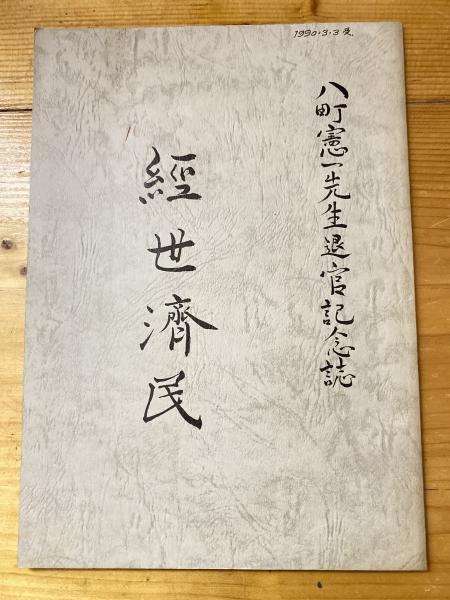 1990.3.3受.
八町憲一先生退官記念誌
經世濟民